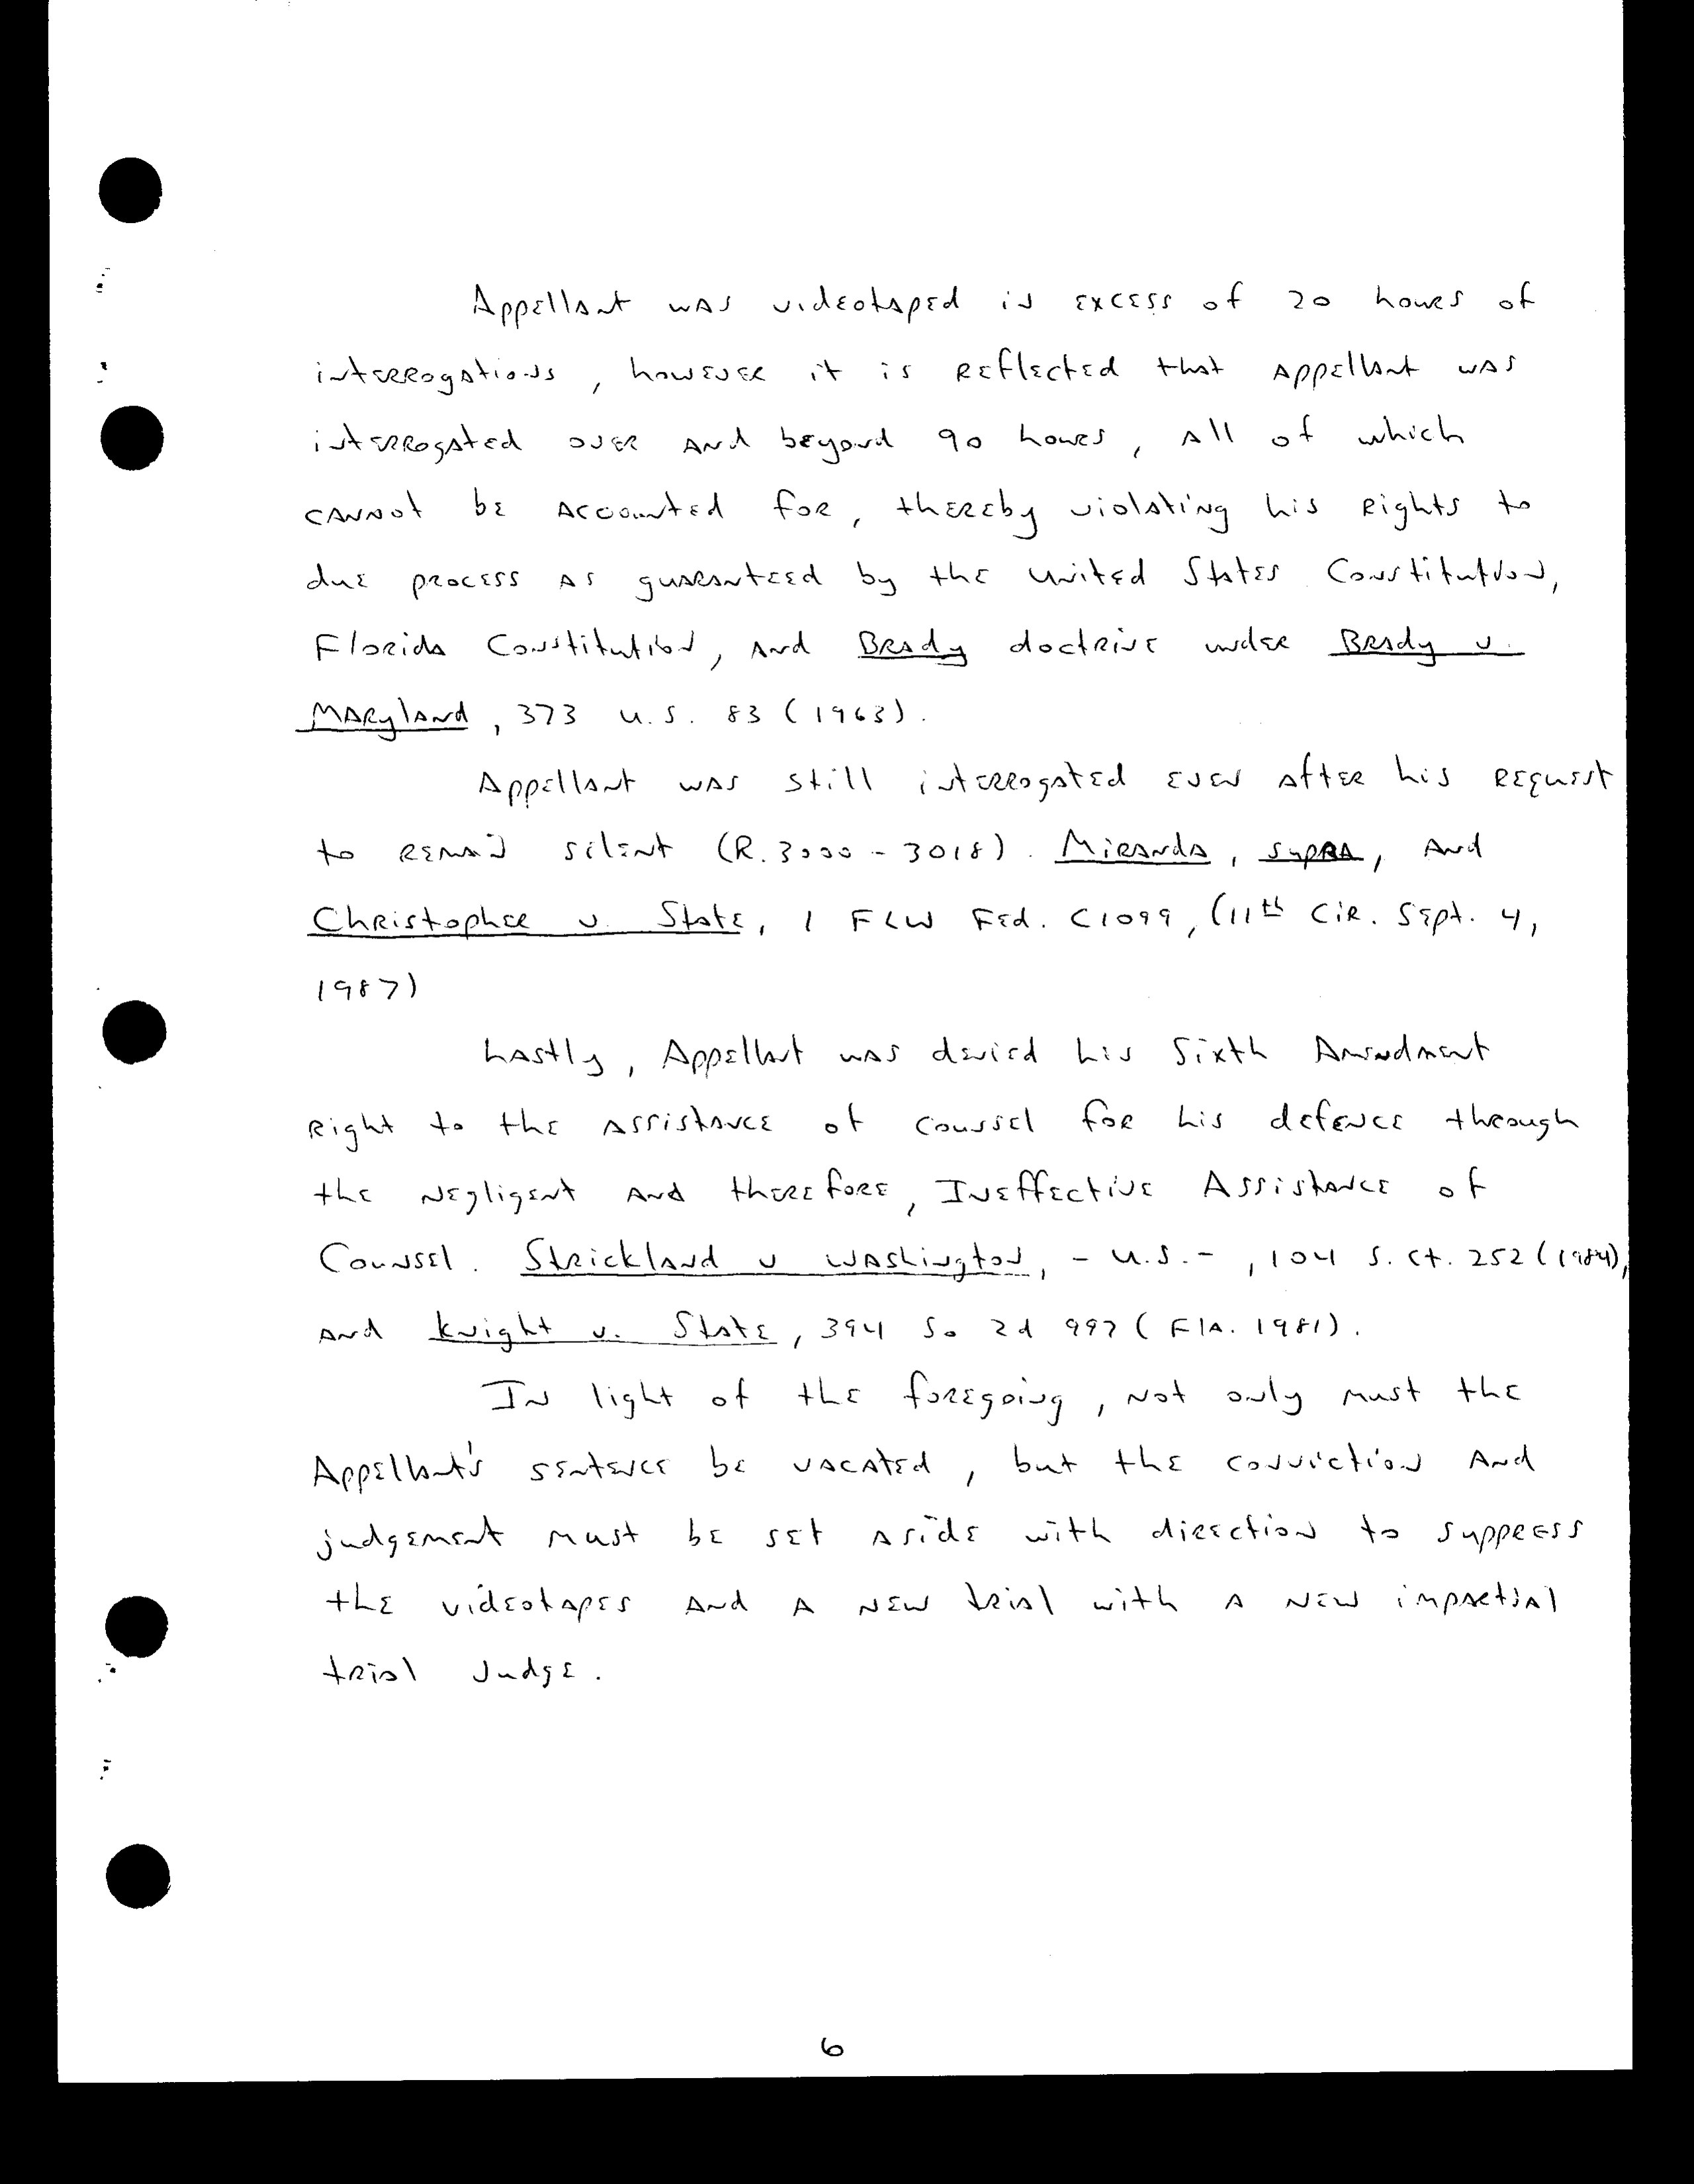 Appellant was videotaped in excess of 20 hours of
interrogations, however it is reflected that appellant was
interrogated over and beyond 90 hours, all of which
cannot be accounted for, thereby violating his rights to
due process as guaranteed by the United States Constitution,
Florida Constitution, and Brady doctrine under Brady v.
Maryland, 373 U.S. 83 (1963).
Appellant was still interrogated even after his request
to remain silent (R. 3000 - 3018). Miranda, supra, and
Christopher v. State, 1 FLW Fed. C1099, (11th Cir. Sept. 4,
1987)
Lastly, Appellant was denied his Sixth Amendment
right to the assistance of counsel for his defence through
the negligent and therefore, Ineffective Assistance of
Counsel. Strickland v Washington, - U.S. - , 104 S. Ct. 252 (1984),
and Knight v. State, 394 So 2d 997 (Fla. 1981).
In light of the foregoing, not only must the
Appellant's sentence be vacated, but the conviction and
judgement must be set aside with direction to suppress
the videotapes and a new trial with a new impartial
trial Judge.
6